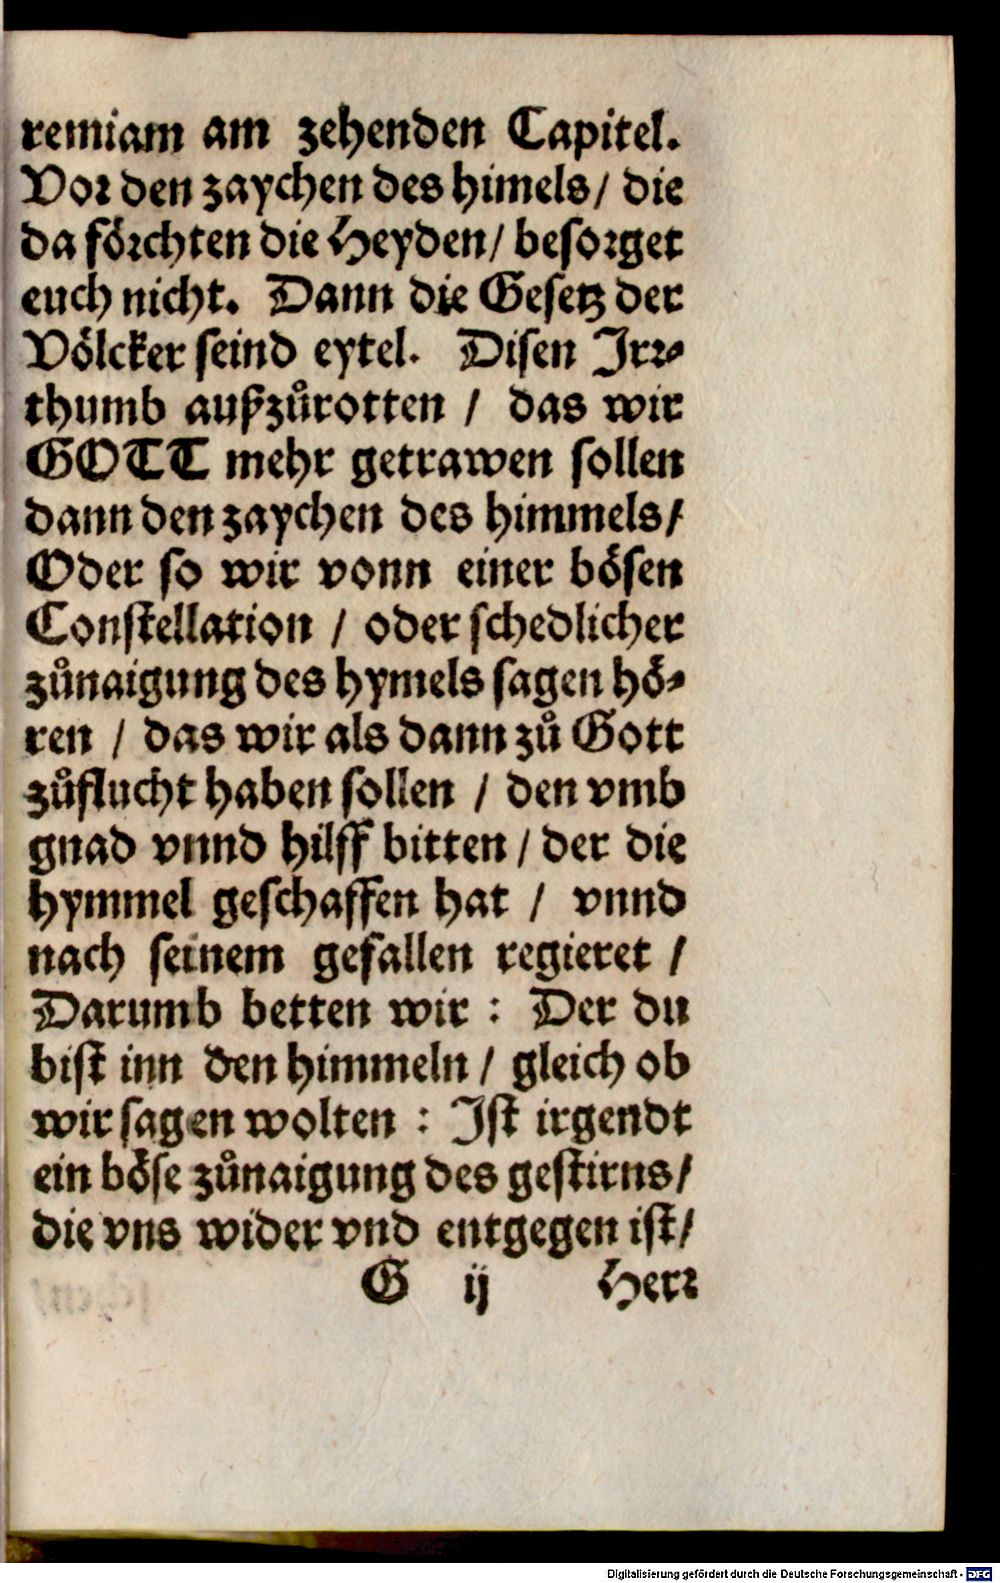 remiam am zehenden Capitel.
Vor den zaychen des himels/ die
da förchten die Heyden/ besorget
euch nicht. Dann die Gesetz der
Völcker seind eytel. Disen Irr⸗
thumb außzůrotten / das wir
GOTT mehr getrawen sollen
dann den zaychen des himmels/
Oder so wir vonn einer bösen
Constellation / oder schedlicher
zůnaigung des hymels sagen hö⸗
ren / das wir als dann zů Gott
zůflucht haben sollen / den vmb
gnad vnnd hilff bitten / der die
hymmel geschaffen hat / vnnd
nach seinem gefallen regieret /
Darumb betten wir : Der du
bist inn den himmeln / gleich ob
wir sagen wolten : Ist irgendt
ein böse zůnaigung des gestirns/
die vns wider vnd entgegen ist/
G ij Herr
Digitalisierung gefördert durch die Deutsche Forschungsgemeinschaft - DFG